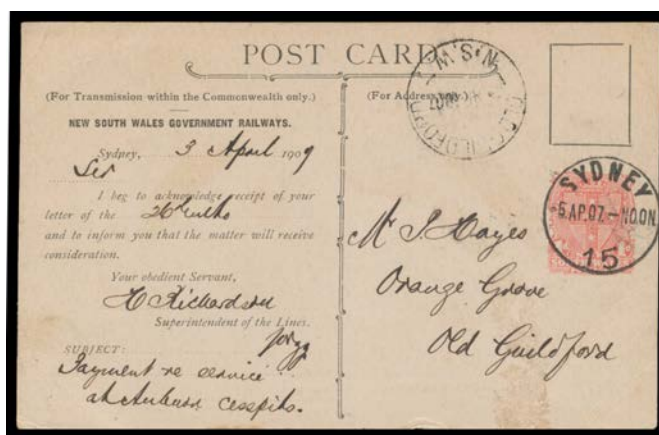 POST CARD
(For Transmission within the Commonwealth only.)
NEW SOUTH WALES GOVERNMENT RAILWAYS.
Sydney, 3 April 1907
Sir
I beg to acknowledge receipt of your
letter of the 26th ulto
and to inform you that the matter will receive
consideration.
Your obedient Servant,
H Richardson
Superintendent of the Lines.
SUBJECT:
Payment re service
at Auburn cesspits.
(For Address only.)
N.S.W
OLD GUILDFORD
SYDNEY
5 AP.07.-NOON
15
Mr J. Hayes
Orange Grove
Old Guildford